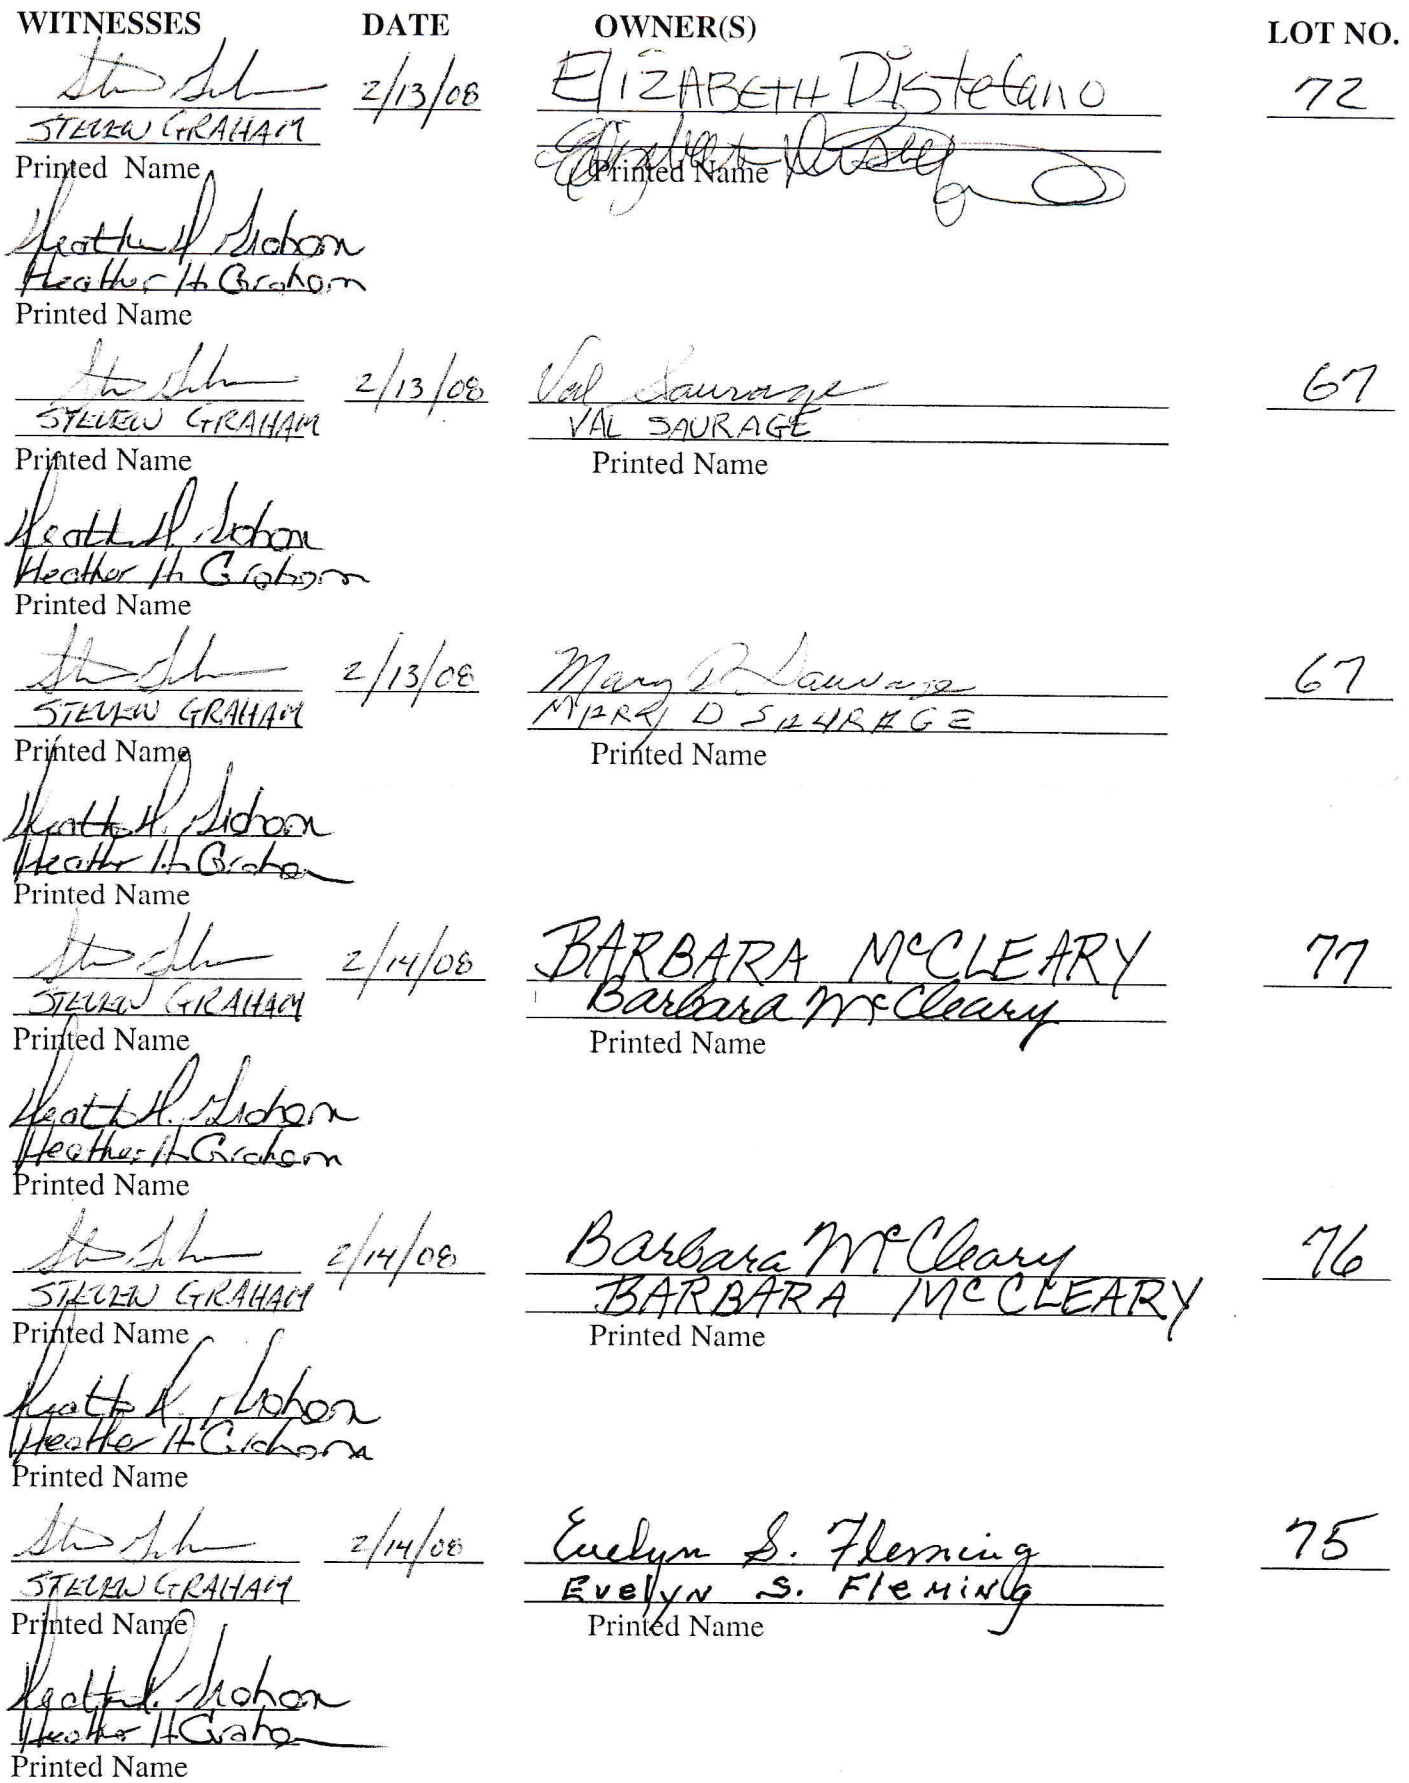 WITNESSES DATE OWNER(S) LOT NO.
2/13/08 ELIZABETH Distefano 72
STEVEN GRAHAM
Printed Name Printed Name
Heather H Graham
Heather H Graham
Printed Name
2/13/08 Val Saurage 67
STEVEN GRAHAM VAL SAURAGE
Printed Name Printed Name
Heather H. Graham
Heather H Graham
Printed Name
2/13/08 Mary D Saurage 67
STEVEN GRAHAM MARY D SAURAGE
Printed Name Printed Name
Heather H. Graham
Heather H Graham
Printed Name
2/14/08 BARBARA McCLEARY 77
STEVEN GRAHAM Barbara McCleary
Printed Name Printed Name
Heather H. Graham
Heather H Graham
Printed Name
2/14/08 Barbara McCleary 76
STEVEN GRAHAM BARBARA McCLEARY
Printed Name Printed Name
Heather H. Graham
Heather H Graham
Printed Name
2/14/08 Evelyn S. Fleming 75
STEVEN GRAHAM Evelyn S. Fleming
Printed Name Printed Name
Heather H. Graham
Heather H Graham
Printed Name